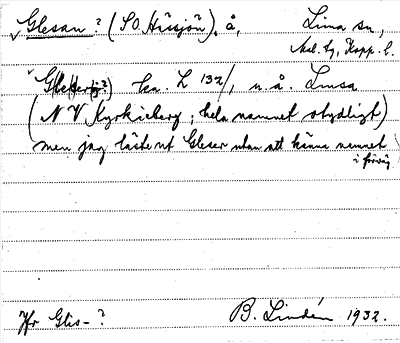 Glesan? (SO Hässjön), å, Lima sn,
Mal. tg, Kopp. l.
ka. L 132/1, n. å. Limsa
(NV Kyrkieberg; hela namnet otydligt)
men jag läste ut Gleser utan att känna namnet
i förväg
Jfr Glis-? B. Lindén 1932.